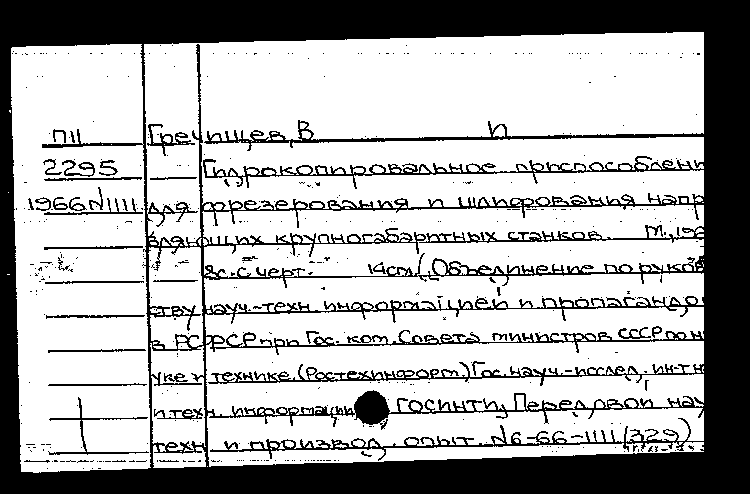 П11 Гречищев, В n
2295 Гидрокопировальное приспособлени
1966N1111 для фрезерования и шлифования напр
вляющих крупногабаритных станков. М., 196
8с. с черт. 14см (Объединение по руков
ству науч.-техн. информацией и пропагандо
в РСФСР при Гос. ком. Совета министров СССР по н
уке и технике. (Ростехинформ) Гос. науч.-исслед. ин-т н
и техн. информации ГОСИНТИ, Передовой нау
техн и производ. опыт. N6-66-1111(329)